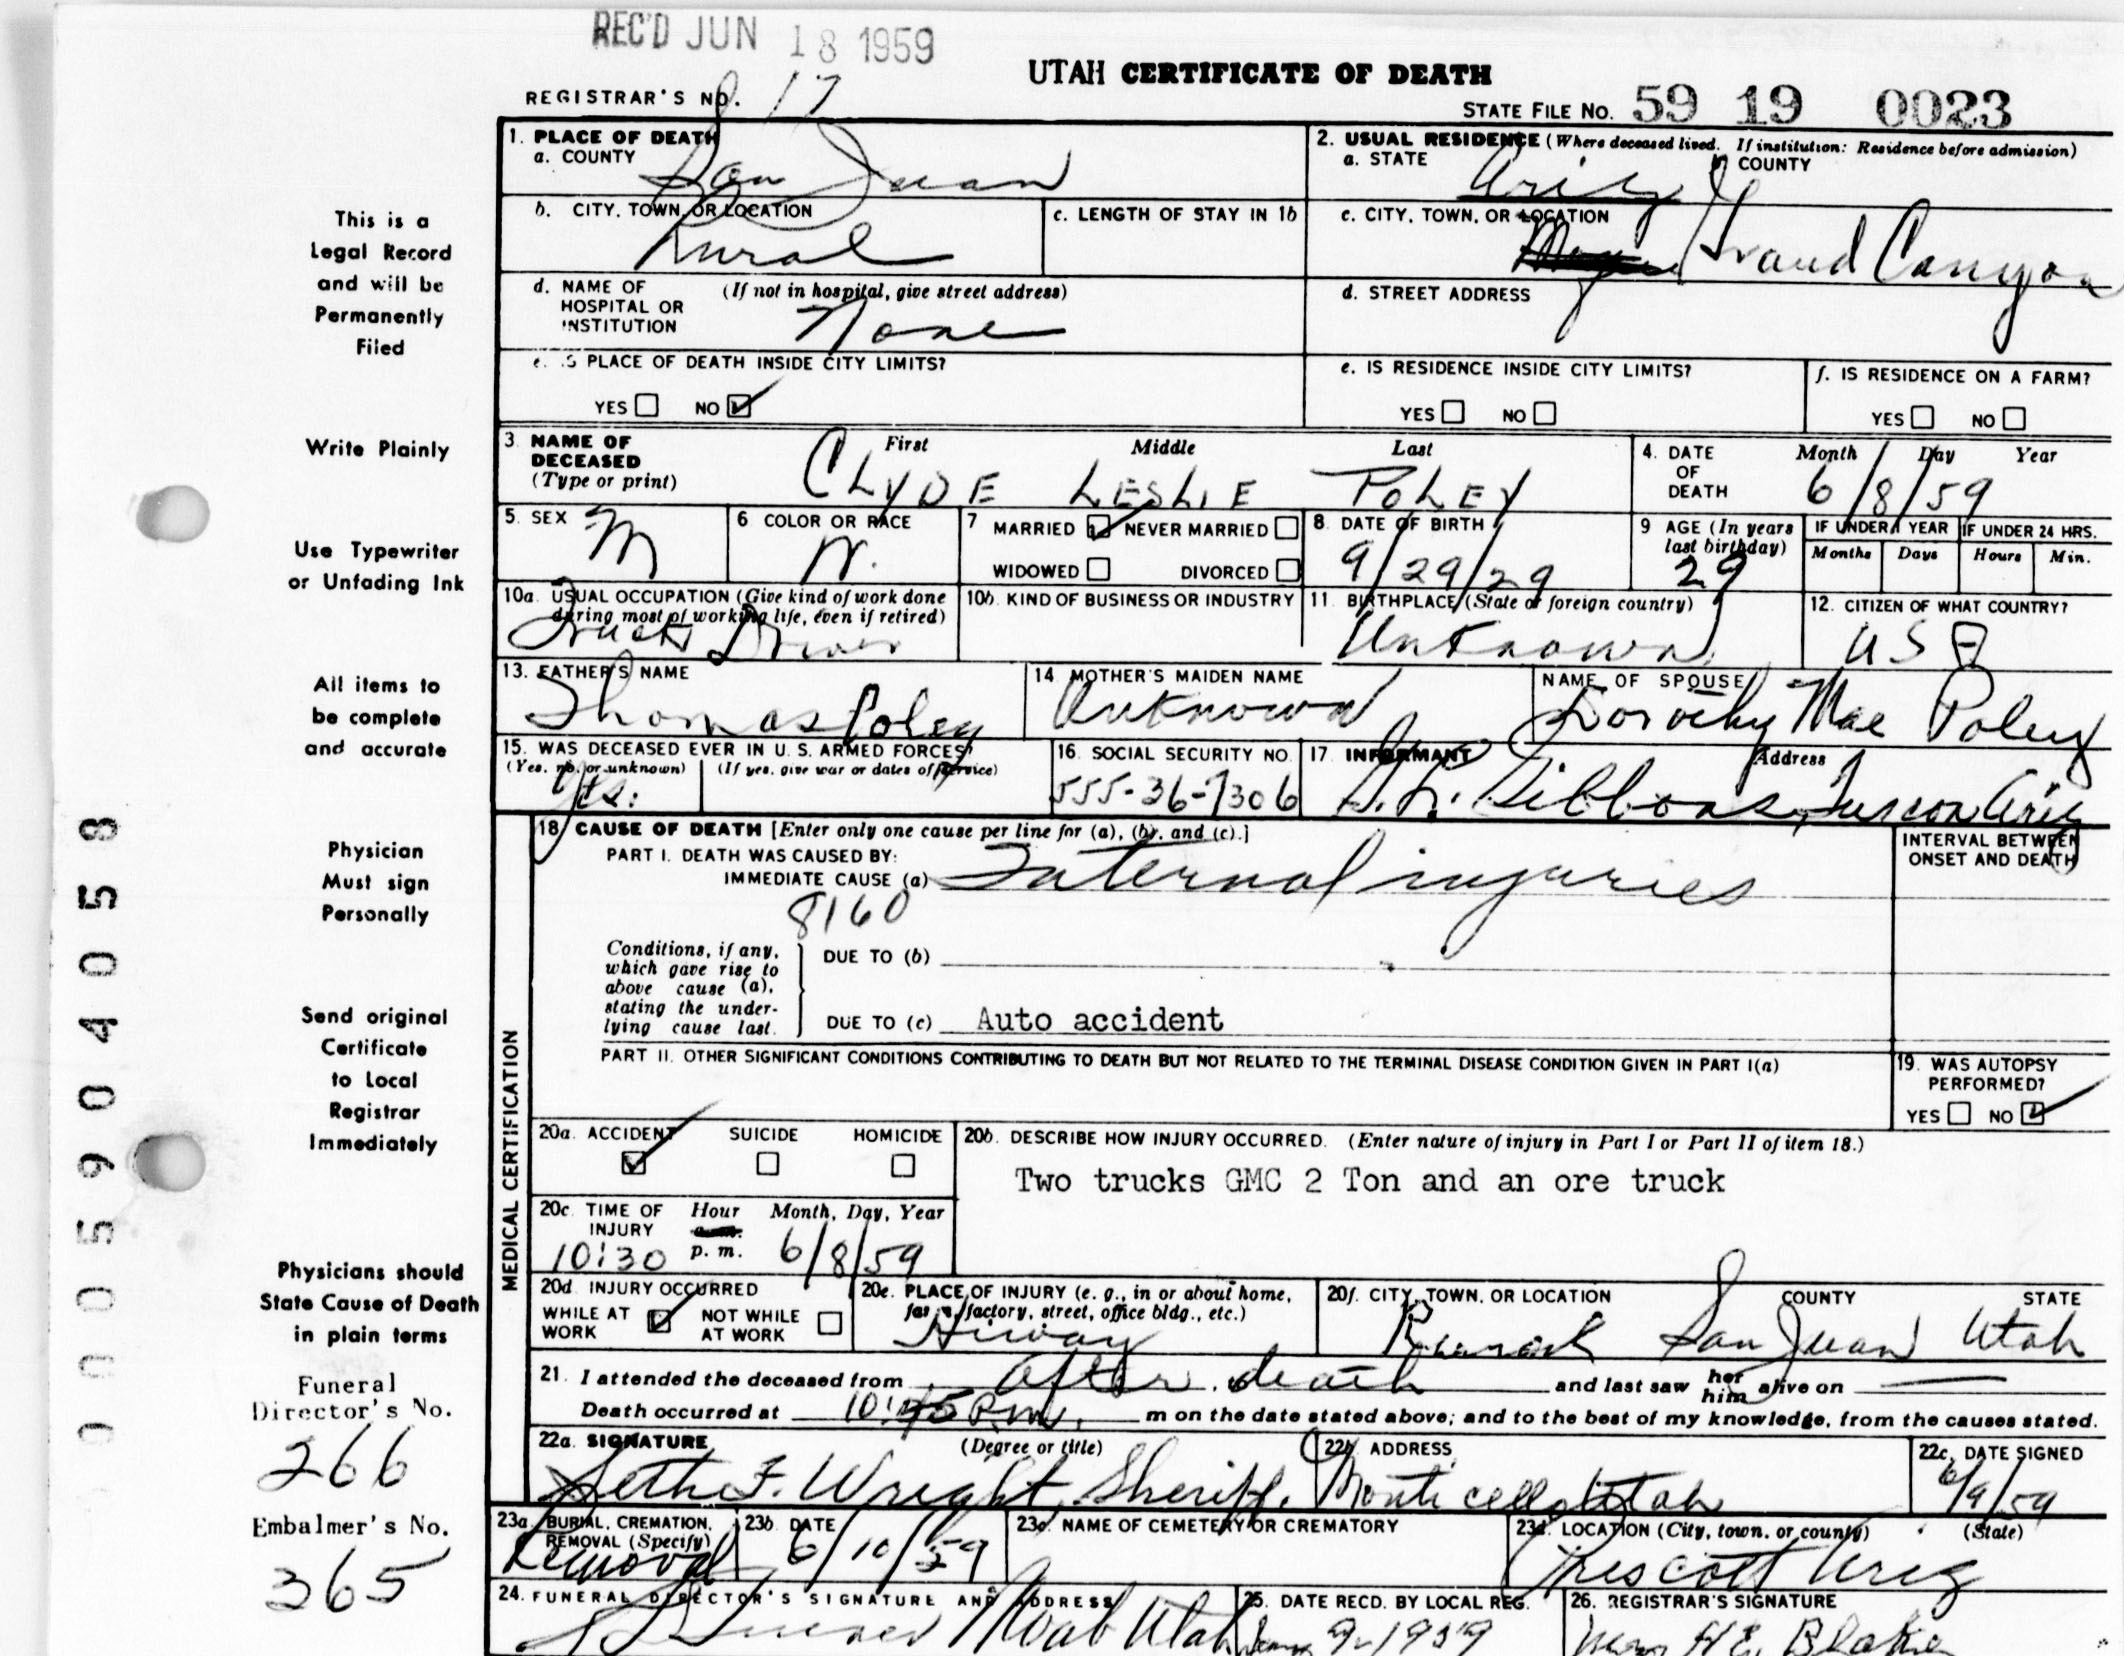 REC'D JUN 18 1959
UTAH CERTIFICATE OF DEATH
REGISTRAR'S NO. 17
STATE FILE NO. 59 19 0023
1. PLACE OF DEATH
a. COUNTY
San Juan
2. USUAL RESIDENCE (Where deceased lived. If institution: Residence before admission)
a. STATE
Ariz
COUNTY
b. CITY, TOWN, OR LOCATION
Rural
c. LENGTH OF STAY IN 1b
c. CITY, TOWN, OR LOCATION
Grand Canyon
d. NAME OF HOSPITAL OR INSTITUTION
(If not in hospital, give street address)
None
d. STREET ADDRESS
e. IS PLACE OF DEATH INSIDE CITY LIMITS?
YES NO
e. IS RESIDENCE INSIDE CITY LIMITS?
YES NO
f. IS RESIDENCE ON A FARM?
YES NO
3. NAME OF DECEASED
(Type or print)
First Middle Last
CLYDE LESLIE POLEY
4. DATE OF DEATH
Month Day Year
6/8/59
5. SEX
M
6 COLOR OR RACE
W.
7 MARRIED NEVER MARRIED
WIDOWED DIVORCED
8. DATE OF BIRTH
9/29/29
9 AGE (In years last birthday)
29
IF UNDER 1 YEAR IF UNDER 24 HRS.
Months Days Hours Min.
10a. USUAL OCCUPATION (Give kind of work done during most of working life, even if retired)
Truck Driver
10b. KIND OF BUSINESS OR INDUSTRY
11. BIRTHPLACE (State or foreign country)
Unknown
12. CITIZEN OF WHAT COUNTRY?
USA
13. FATHER'S NAME
Thomas Poley
14 MOTHER'S MAIDEN NAME
Unknown
NAME OF SPOUSE
Dorothy Mae Poley
15. WAS DECEASED EVER IN U. S. ARMED FORCES?
(Yes, no, or unknown) (If yes, give war or dates of service)
Yes.
16. SOCIAL SECURITY NO.
555-36-7306
17. INFORMANT Address
Gibbons, Tuscon Ariz
18 CAUSE OF DEATH [Enter only one cause per line for (a), (b), and (c).]
PART I. DEATH WAS CAUSED BY:
IMMEDIATE CAUSE (a) Internal injuries
8160
INTERVAL BETWEEN ONSET AND DEATH
Conditions, if any, which gave rise to above cause (a), stating the underlying cause last.
DUE TO (b)
DUE TO (c) Auto accident
PART II. OTHER SIGNIFICANT CONDITIONS CONTRIBUTING TO DEATH BUT NOT RELATED TO THE TERMINAL DISEASE CONDITION GIVEN IN PART I(a)
19. WAS AUTOPSY PERFORMED?
YES NO
20a. ACCIDENT SUICIDE HOMICIDE
20b. DESCRIBE HOW INJURY OCCURRED. (Enter nature of injury in Part I or Part II of item 18.)
Two trucks GMC 2 Ton and an ore truck
20c. TIME OF INJURY
Hour Month, Day, Year
10:30 p. m. 6/8/59
20d. INJURY OCCURRED
WHILE AT WORK NOT WHILE AT WORK
20e. PLACE OF INJURY (e. g., in or about home, farm, factory, street, office bldg., etc.)
Hiway
20f. CITY, TOWN, OR LOCATION COUNTY STATE
San Juan Utah
21. I attended the deceased from after death and last saw her him alive on
Death occurred at 10:45 P.m. m on the date stated above; and to the best of my knowledge, from the causes stated.
22a. SIGNATURE (Degree or title)
Seth F. Wright, Sheriff.
22b. ADDRESS
Monticello Utah
22c. DATE SIGNED
6/9/59
23a. BURIAL, CREMATION, REMOVAL (Specify)
Removal
23b. DATE
6/10/59
23c. NAME OF CEMETERY OR CREMATORY
23d. LOCATION (City, town, or county) (State)
Prescott Ariz
24. FUNERAL DIRECTOR'S SIGNATURE AND ADDRESS
Moab Utah
25. DATE RECD. BY LOCAL REG.
9-1959
26. REGISTRAR'S SIGNATURE
Blake
This is a
Legal Record
and will be
Permanently
Filed
Write Plainly
Use Typewriter
or Unfading Ink
All items to
be complete
and accurate
Physician
Must sign
Personally
Send original
Certificate
to Local
Registrar
Immediately
Physicians should
State Cause of Death
in plain terms
Funeral
Director's No.
266
Embalmer's No.
365
MEDICAL CERTIFICATION
9005904058